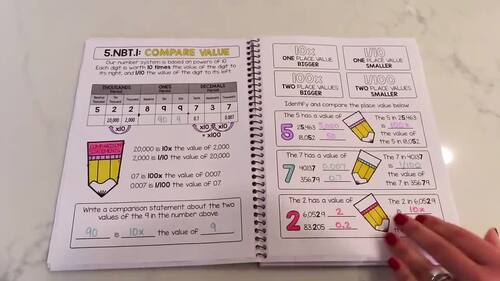 5.NBT.1: COMPARE VALUE
Our number system is based on powers of 10.
Each digit is worth 10 times the value of the digit to
its right, and 1/10 the value of the digit to its left.
THOUSANDS ONES DECIMALS
Period Period Period
5 2 2 8 9 9 7 3 7
20,000 2,000 90 9 0.7 0.007
x10 x10 x10
x100
COMPARISON
STATEMENTS
20,000 is 10x the value of 2,000.
2,000 is 1/10 the value of 20,000.
0.7 is 100x the value of 0.007.
0.007 is 1/100 the value of 0.7.
Write a comparison statement about the two
values of the 9 in the number above.
90 is 10x the value of 9
10x
ONE PLACE VALUE
BIGGER
1/10
ONE PLACE VALUE
SMALLER
100x
TWO PLACE VALUES
BIGGER
1/100
TWO PLACE VALUES
SMALLER
Identify and compare the place value below.
5
The 5 has a value of
25,463 5,000
18,052 50
The 5 in 25,463
is 100x
the value of
the 5 in 18,052.
7
The 7 has a value of
401.37 0.007
356.79 0.7
The 7 in 401.37
is 1/100
the value of
the 7 in 356.79
2
The 2 has a value of
6,052.9 2
83.205 0.2
The 2 in 6,052.9
is 10x